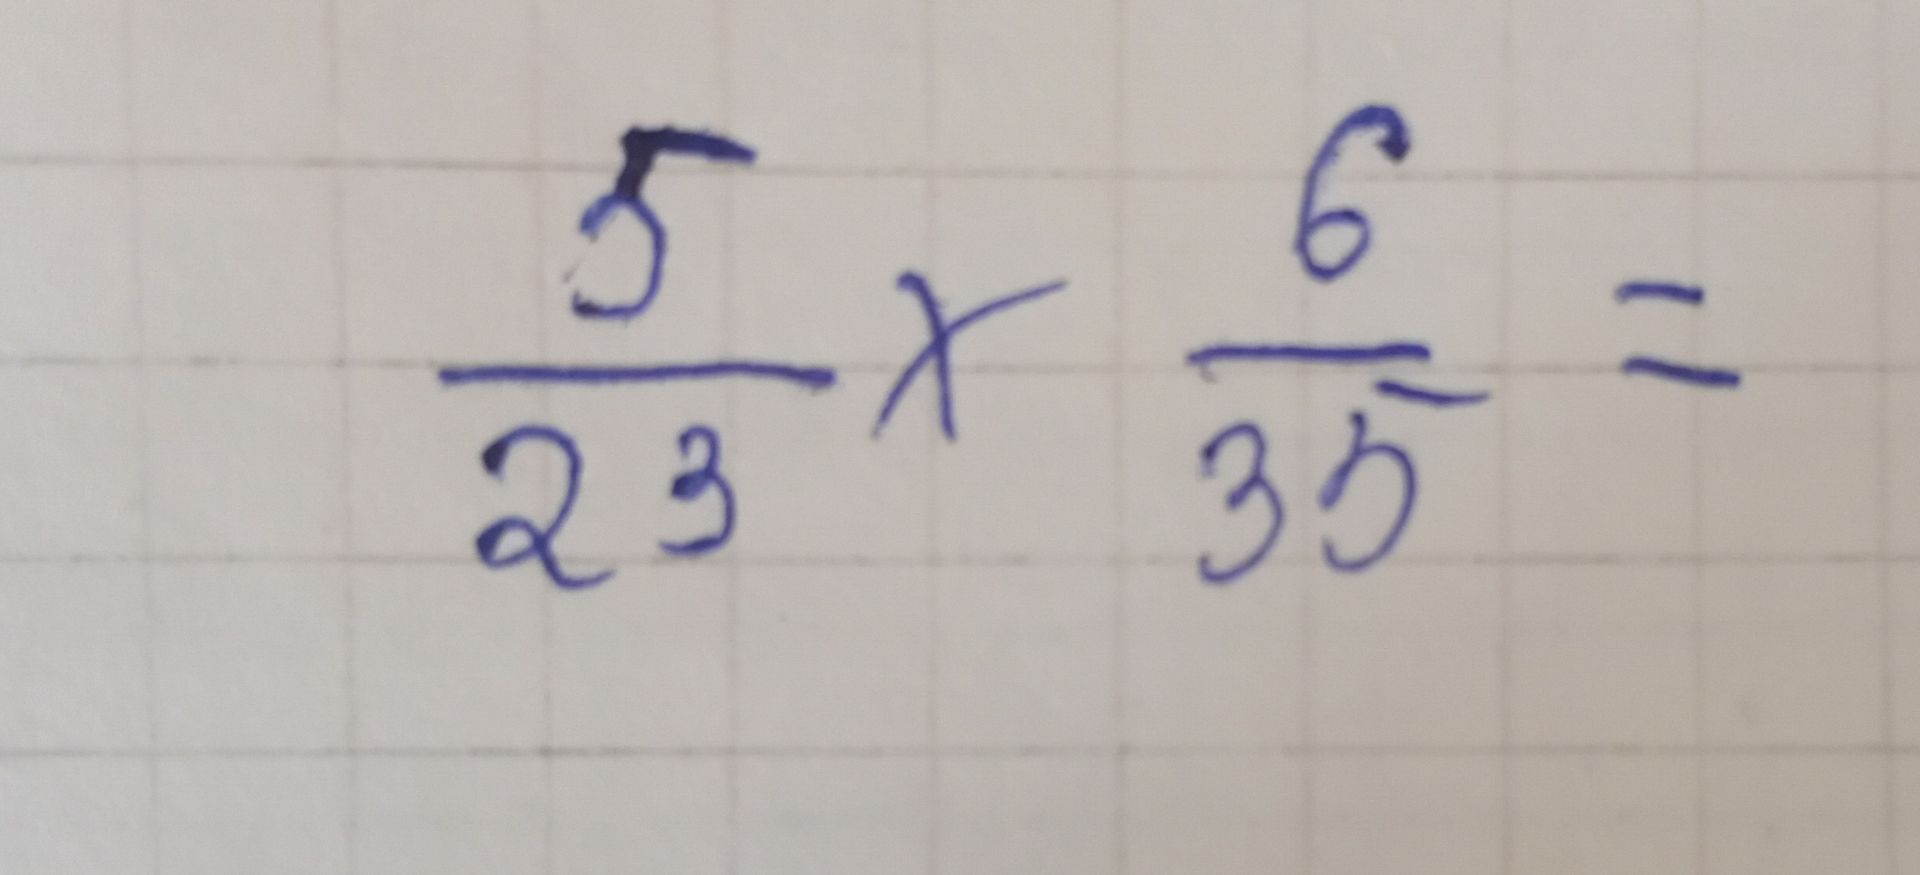 5/23 × 6/35 =